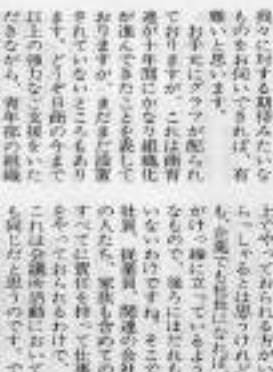 我々に対する期待みたいな
ものをお伺いできれば、有
難いと思います。
お手元にグラフが配られ
ておりますが、これは商青
連が十年間にかなり組織化
が進んできたことを表して
おりますが、まだまだ設置
されていないところもあり
ます。どうぞ日商の今まで
以上の強力なご支援をいた
だきながら、青年部の組織
上でやっておられる方がい
らっしゃるとは思うけれど
も、企業でも社長になれば
がけっ縁に立っているよう
なもので、後ろにはだれも
いないわけですね。そこで
社員、従業員、関連の会社
の人たち、家族も含めての
すべてに責任を持って仕事
をやっておられるわけで、
これは会議所活動において
も同じだと思うのです。で